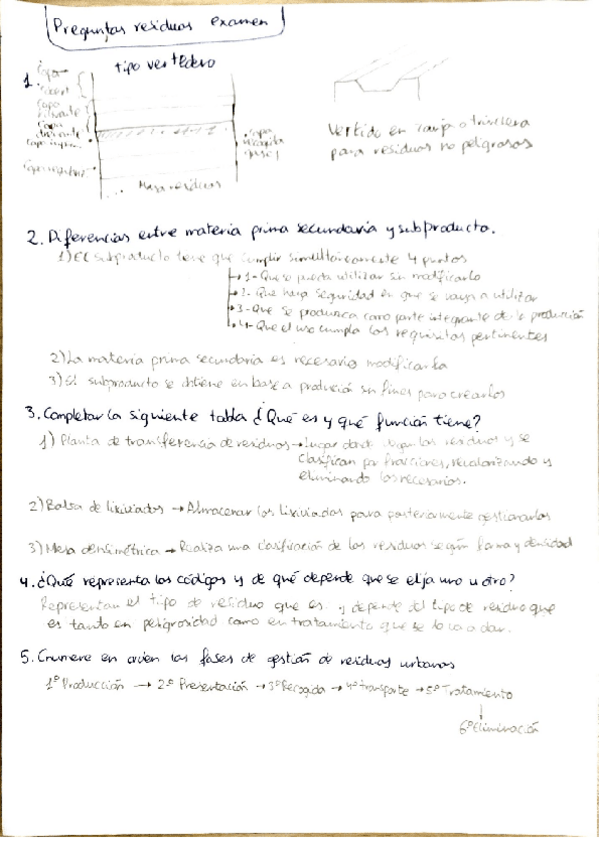 Preguntas residuos examen
1.
tipo vertedero
Capa
drenante
Capa
Masa residuos
Vertido en zanja o trinchera
para residuos no peligrosos
2. Diferencias entre materia prima secundaria y subproducto.
1) El subproducto tiene que cumplir simultáneamente 4 puntos
1- Que se pueda utilizar sin modificarlo
2- Que haya seguridad en que se vaya a utilizar
3- Que se produzca como parte integrante de la producción
4- Que el uso cumpla los requisitos pertinentes
2) La materia prima secundaria es necesario modificarla
3) El subproducto se obtiene en base a produción sin fines para crearlos
3. Completar la siguiente tabla ¿Qué es y qué función tiene?
1) Planta de transferencia de residuos → Lugar donde llegan los residuos y se
clasifican por fracciones, revalorizando y
eliminando los necesarios.
2) Balsa de lixiviados → Almacenar los lixiviados para posteriormente gestionarlos
3) Mesa densimétrica → Realiza una clasificación de los residuos según forma y densidad
4. ¿Qué representa los códigos y de qué depende que se elija uno u otro?
Representan el tipo de residuo que es y depende del tipo de residuo que
es tanto en peligrosidad como en tratamiento que se le va a dar.
5. Enumere en orden las fases de gestión de residuos urbanos
1º Producción → 2º Presentación → 3º Recogida → 4º transporte → 5º Tratamiento
6º Eliminación